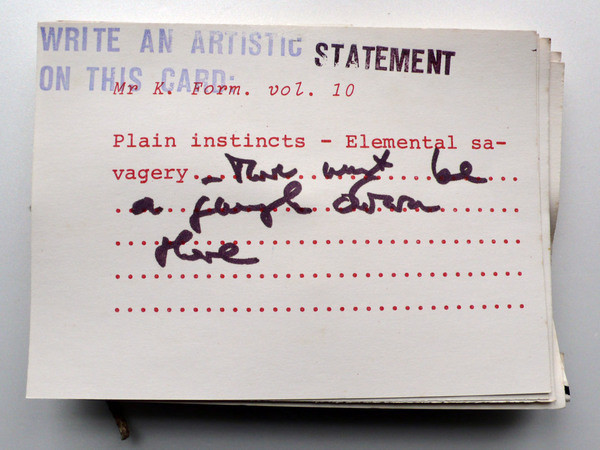 WRITE AN ARTISTIC STATEMENT
ON THIS CARD:
Mr K. Form. vol. 10
Plain instincts - Elemental sa-
vagery - There must be
a down
there